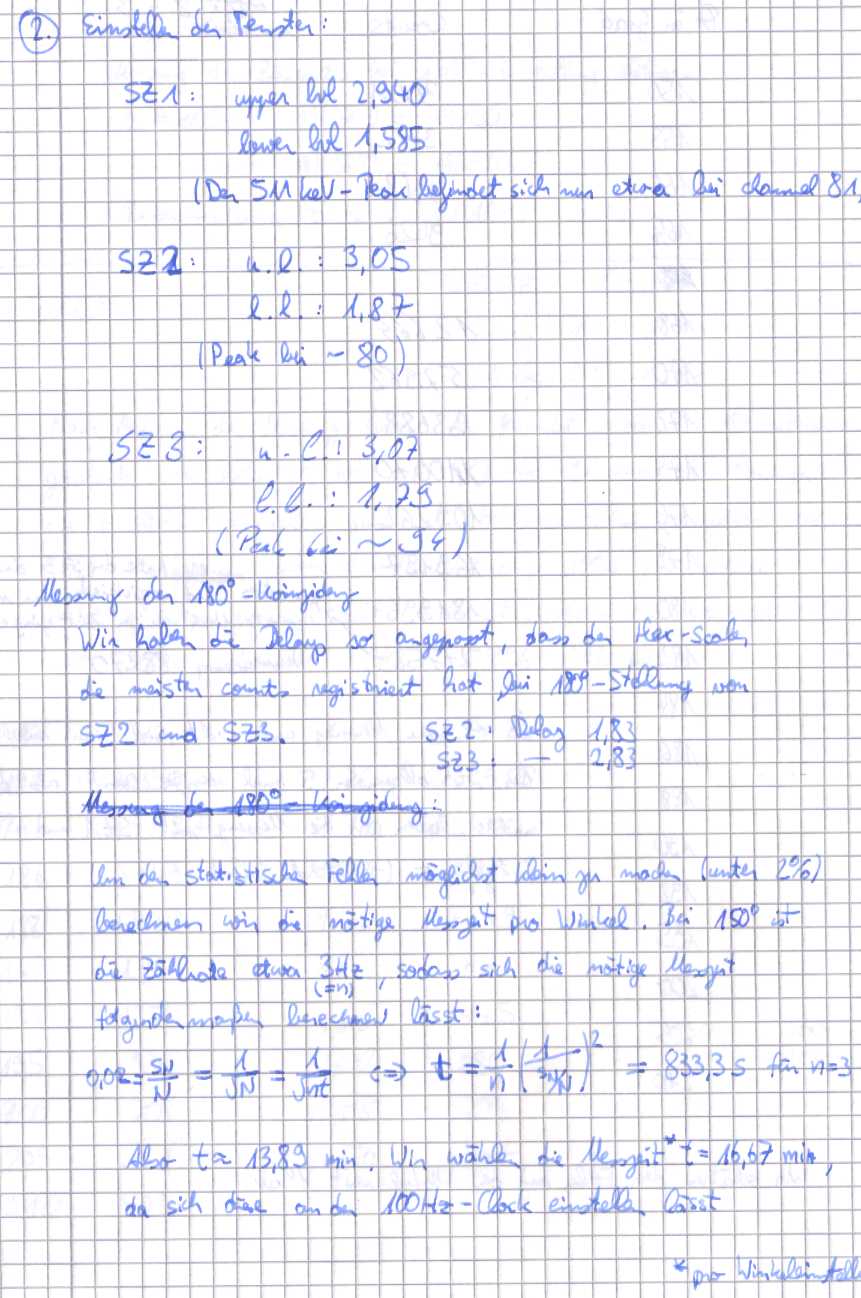 2. Einstellen der Fenster:
SZ1: upper lvl 2,940
lower lvl 1,585
(Der 511 keV-Peak befindet sich nun etwa bei channel 81,
SZ2: u.l.: 3,05
l.l.: 1,87
(Peak bei ~ 80)
SZ3: u.l.: 3,07
l.l.: 1,79
(Peak bei ~ 94)
Messung der 180°-Koinzidenz
Wir haben die Delays so angepasst, dass der Hex-Scaler
die meisten counts registriert hat bei 180°-Stellung von
SZ2 und SZ3. SZ2: Delay 1,83
SZ3: — 2,83
Messung der 180°-Koinzidenz:
Um den statistischen Fehler möglichst klein zu machen (unter 2%)
berechnen wir die nötige Messzeit pro Winkel. Bei 150° ist
die Zählrate etwa 3Hz, sodass sich die nötige Messzeit
(=n)
folgendermaßen berechnen lässt:
0,02 = SN/N = 1/√N = 1/√nt ⇔ t = 1/n (1/(SN/N))² = 833,3 s für n=3
Also t ≈ 13,89 min. Wir wählen die Messzeit* t = 16,67 min,
da sich diese an der 100Hz-Clock einstellen lässt
* pro Winkeleinstell